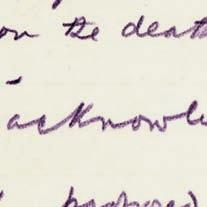 on the death
acknowle